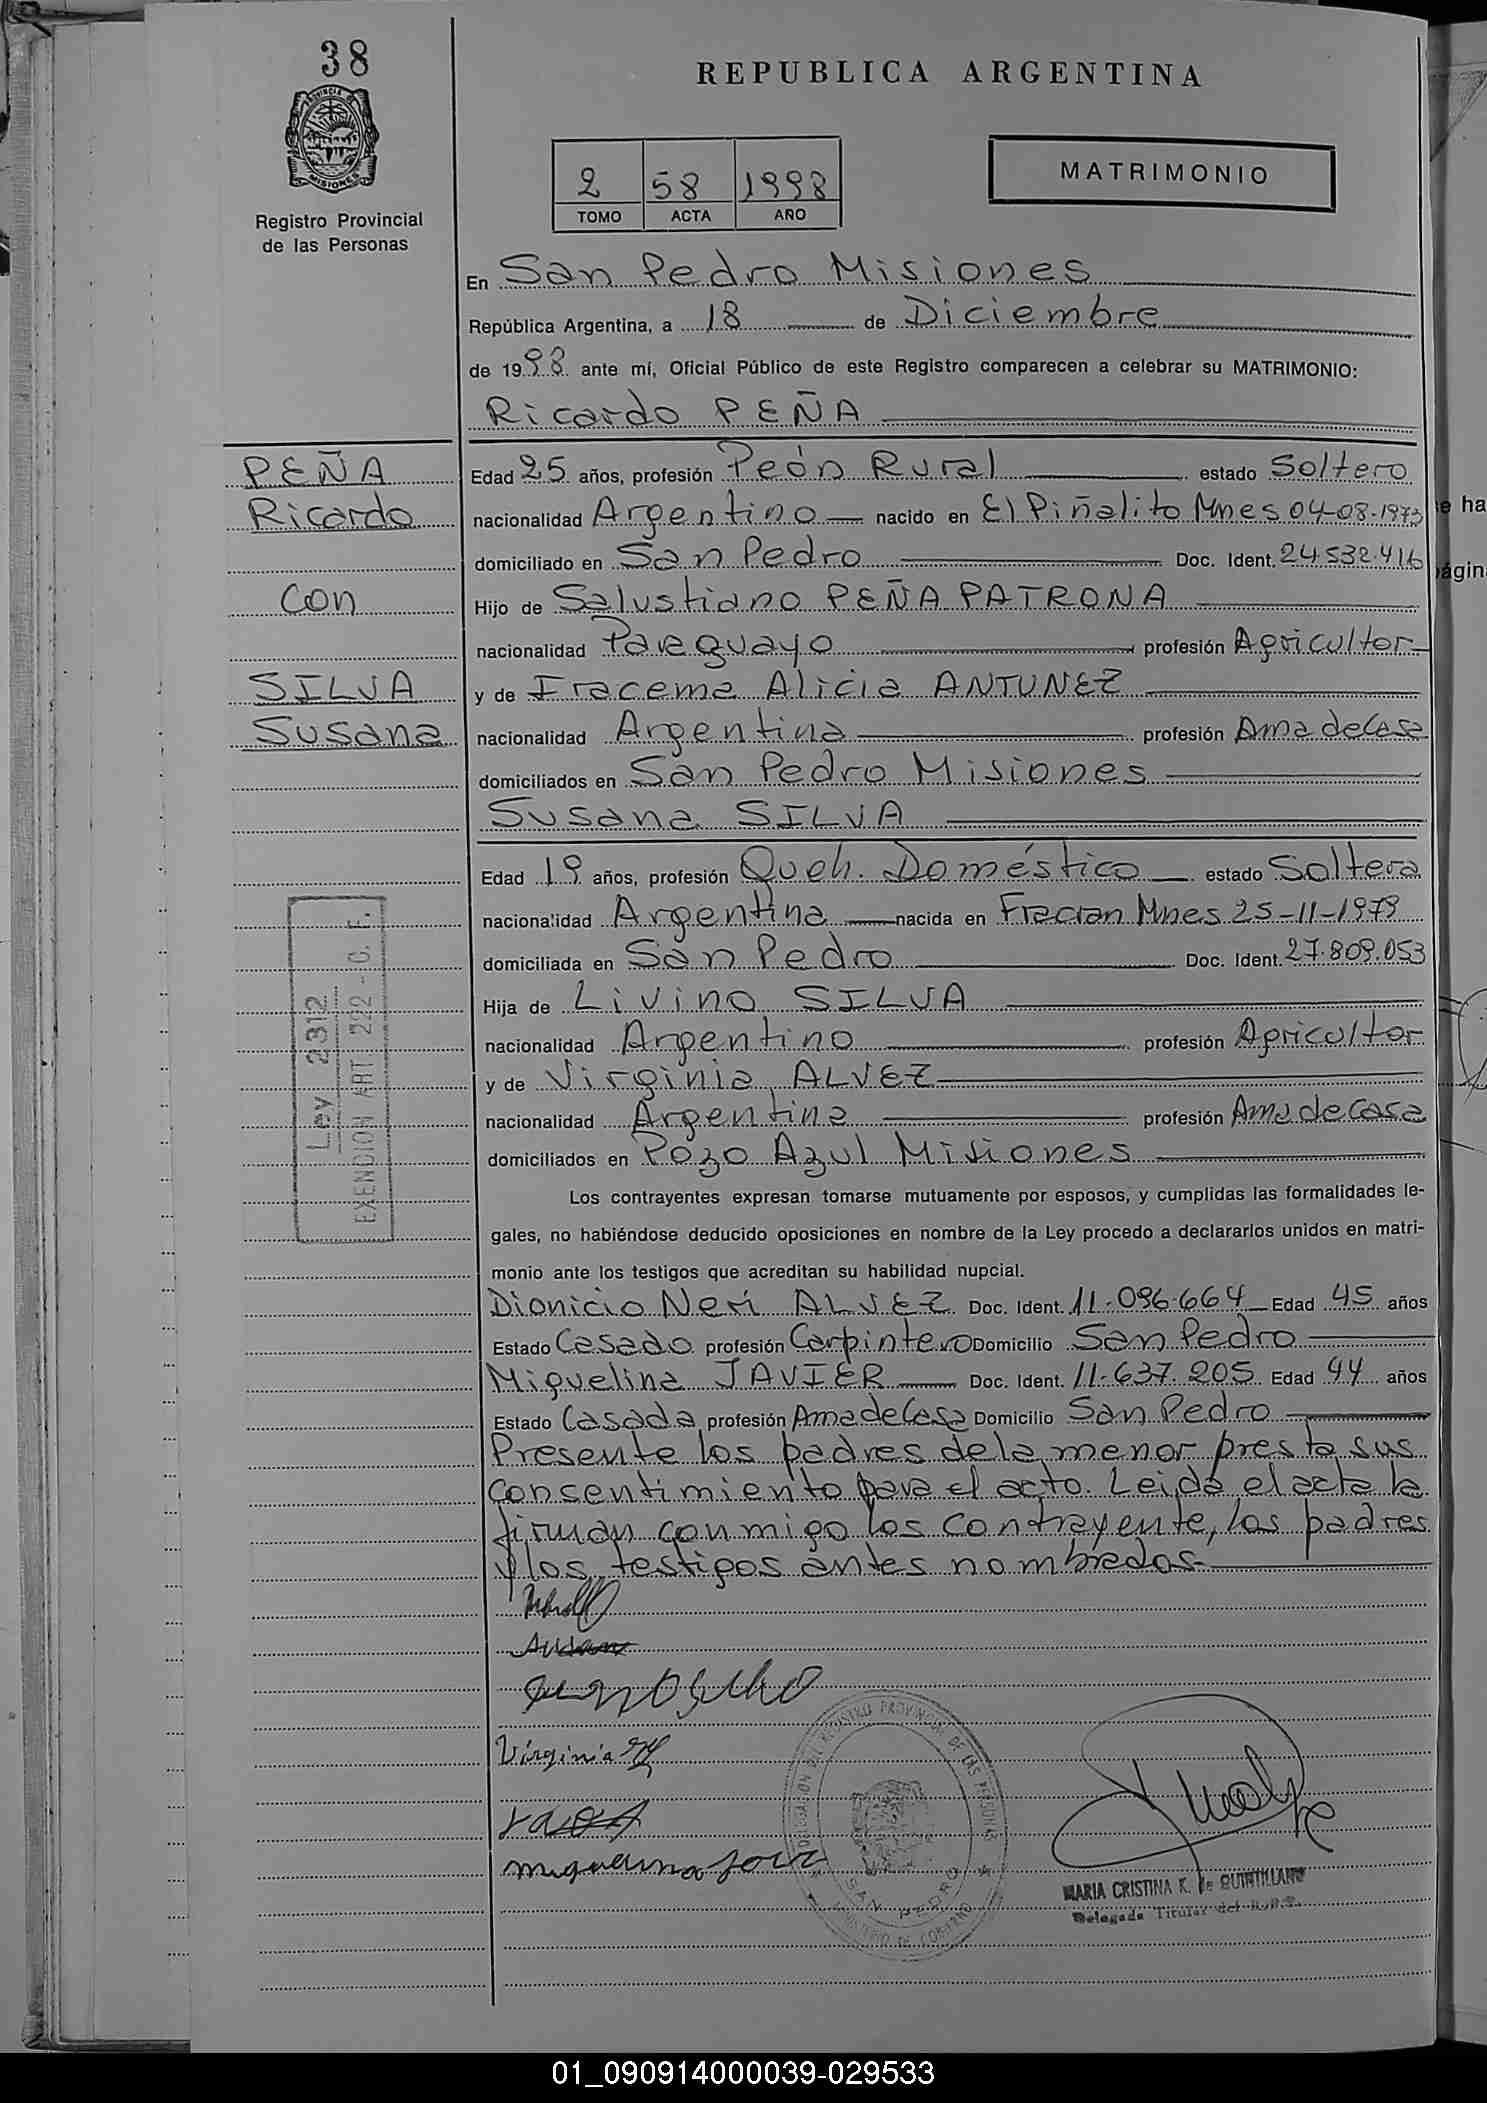 38
REPUBLICA ARGENTINA
PROVINCIA DE
MISIONES
Registro Provincial
de las Personas
2 58 1998
TOMO ACTA AÑO
MATRIMONIO
En San Pedro Misiones
República Argentina, a 18 de Diciembre
de 1998 ante mí, Oficial Público de este Registro comparecen a celebrar su MATRIMONIO:
Ricardo PEÑA
PEÑA
Ricardo
Con
SILVA
Susana
Edad 25 años, profesión Peón Rural estado Soltero
nacionalidad Argentino nacido en El Piñalito Mnes 04-08-1973
domiciliado en San Pedro Doc. Ident. 24.532.416
Hijo de Salustiano PEÑA PATRONA
nacionalidad Paraguayo profesión Agricultor
y de Iracema Alicia ANTUNEZ
nacionalidad Argentina profesión Ama de Casa
domiciliados en San Pedro Misiones
Susana SILVA
Edad 19 años, profesión Queh. Doméstico estado Soltera
nacionalidad Argentina nacida en Fracran Mnes 25-11-1979
domiciliada en San Pedro Doc. Ident. 27.809.053
Hija de Livino SILVA
nacionalidad Argentino profesión Agricultor
y de Virginia ALVEZ
nacionalidad Argentina profesión Ama de Casa
domiciliados en Pozo Azul Misiones
Ley 2312
EXENCION ART. 222 - C. F.
Los contrayentes expresan tomarse mutuamente por esposos, y cumplidas las formalidades le-
gales, no habiéndose deducido oposiciones en nombre de la Ley procedo a declararlos unidos en matri-
monio ante los testigos que acreditan su habilidad nupcial.
Dionicio Neri ALVEZ Doc. Ident. 11.096.664 Edad 45 años
Estado Casado profesión Carpintero Domicilio San Pedro
Miguelina JAVIER Doc. Ident. 11.637.205 Edad 44 años
Estado Casada profesión Ama de Casa Domicilio San Pedro
Presente los padres de la menor presta sus
consentimiento para el acto. Leida el acta la
firman conmigo los contrayente, los padres
y los testigos antes nombrados
Virginia
DELEGACION DEL REGISTRO PROVINCIAL DE LAS PERSONAS
SAN PEDRO
MINISTERIO DE GOBIERNO
MARIA CRISTINA K. de QUINTILLAN
Delegada Titular del R.P.P.
e ha
ágin
01_090914000039-029533